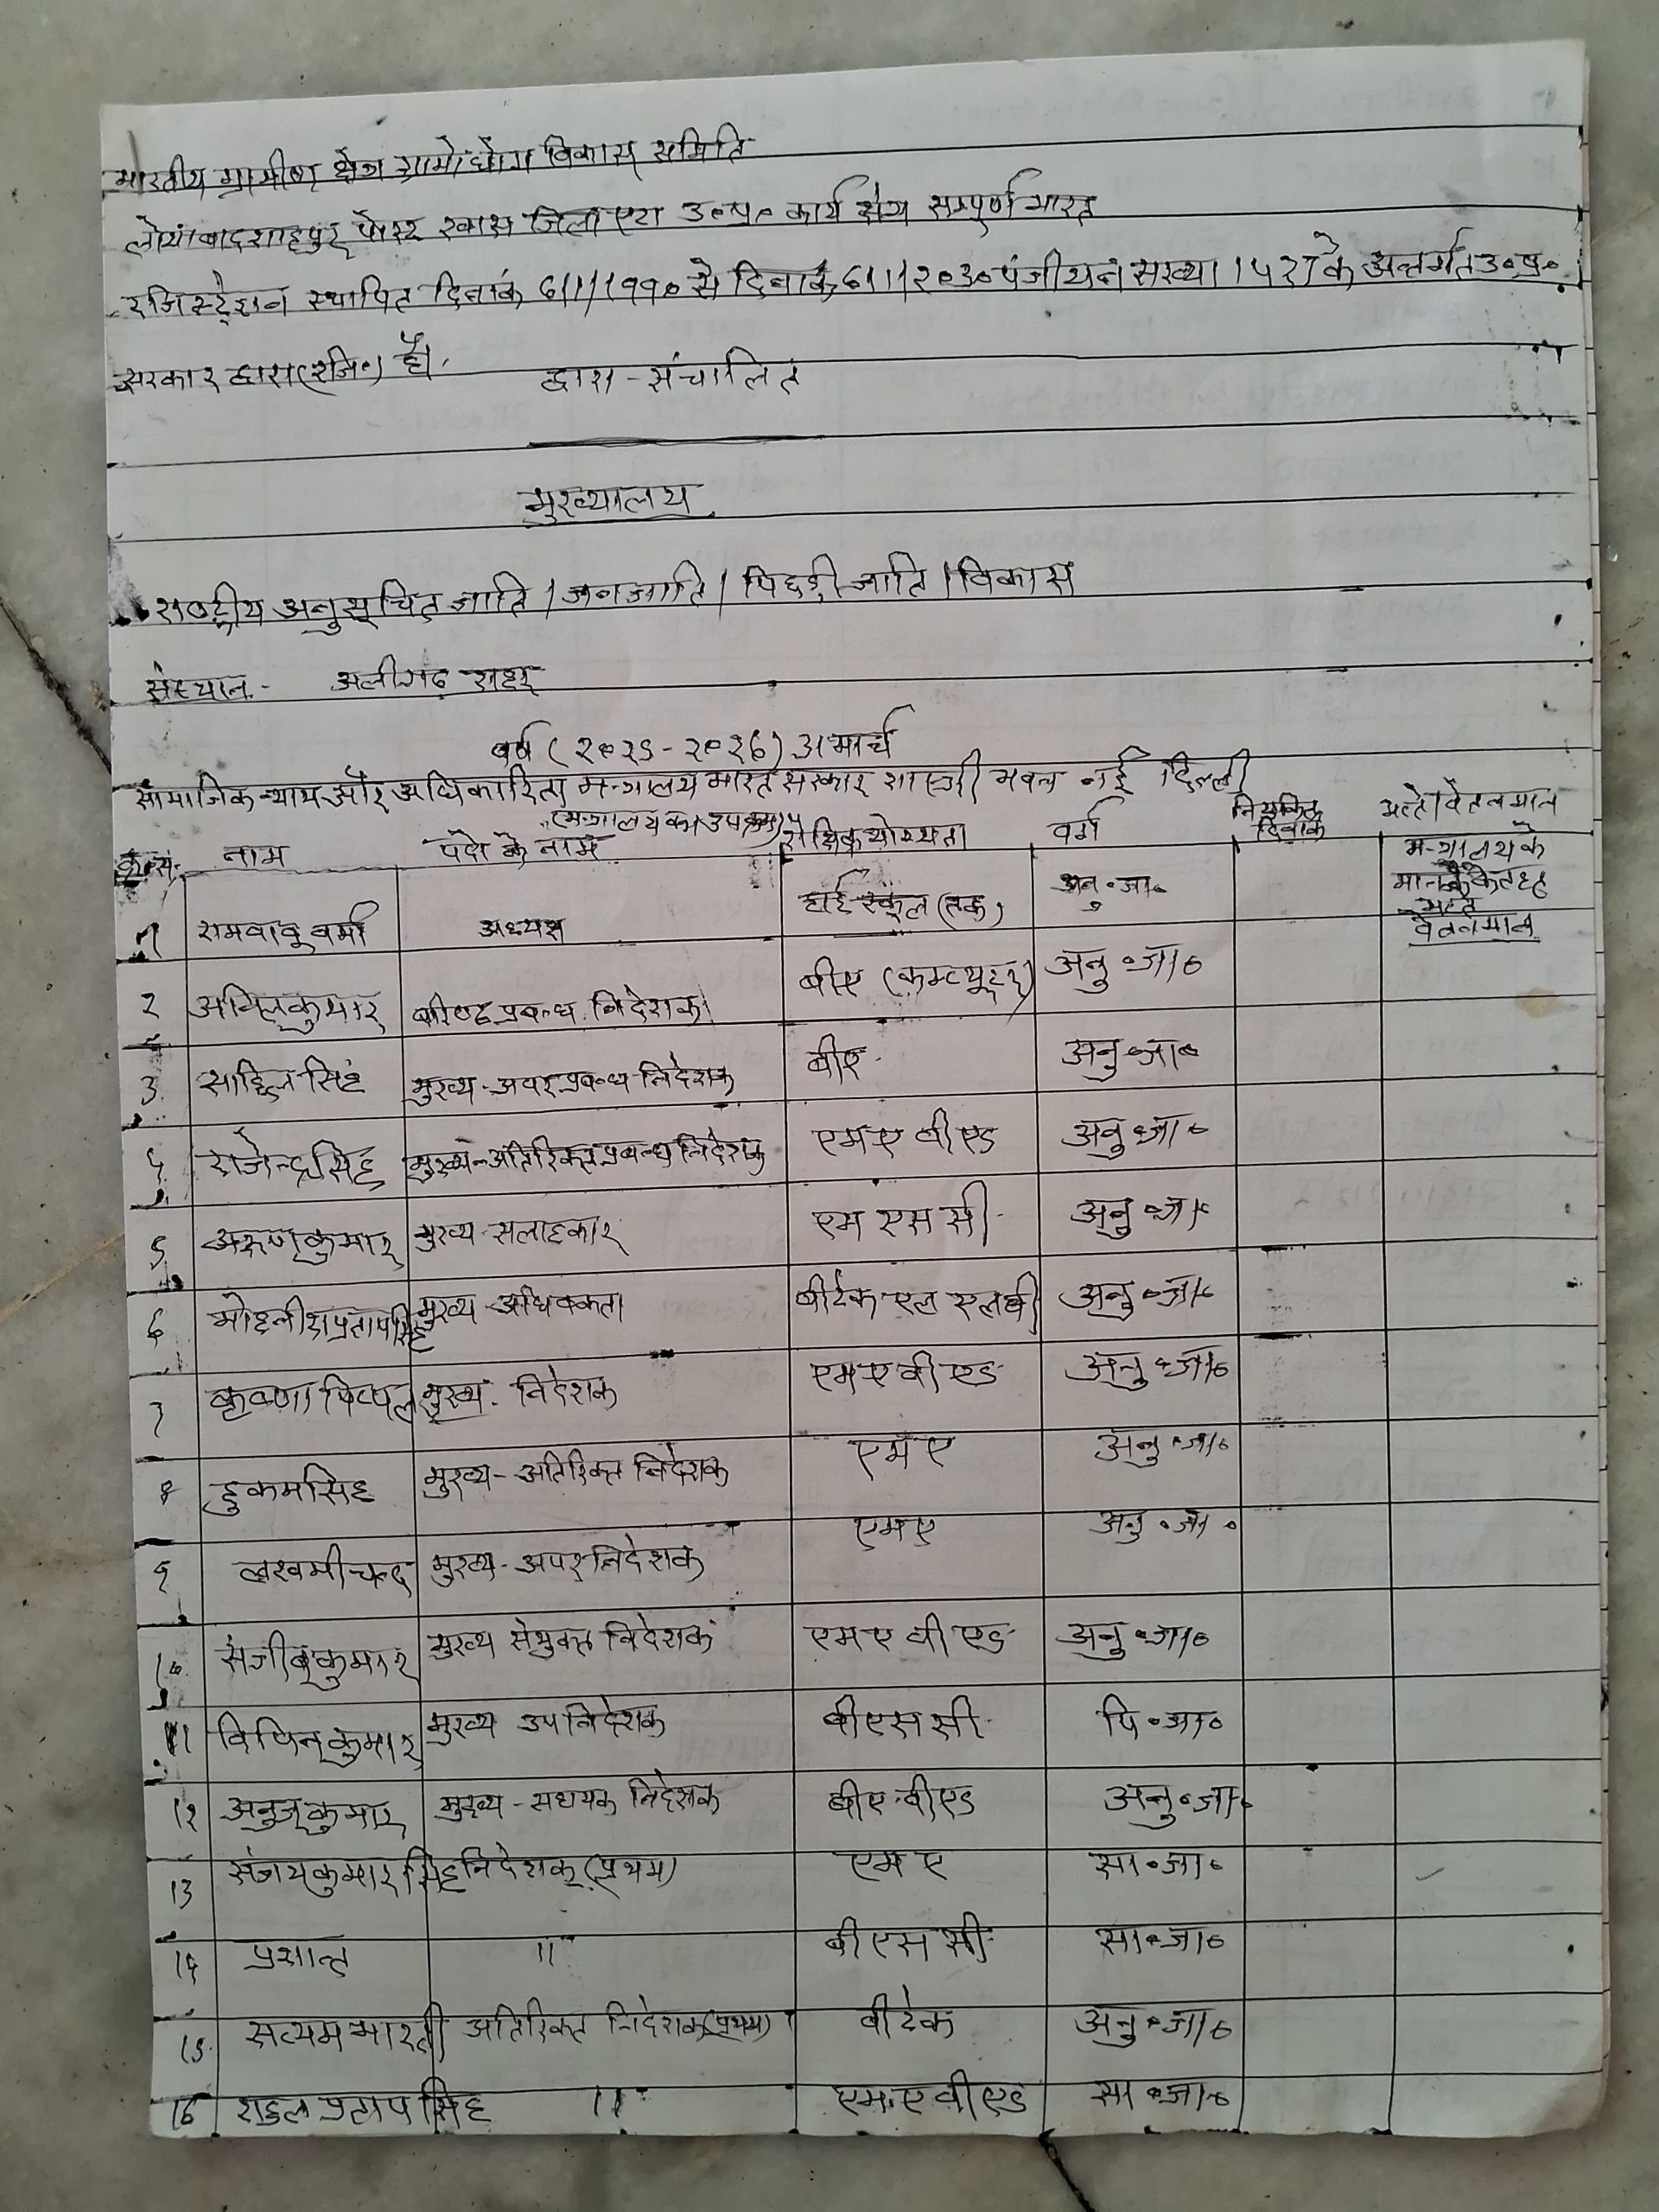 भारतीय ग्रामीण क्षेत्र ग्रामोद्योग विकास समिति
लोया बादशाहपुर पोस्ट खास जिला एटा उ०प्र० कार्य क्षेत्र सम्पूर्ण भारत
रजिस्ट्रेशन स्थापित दिनांक ६/1/1990 से दिनांक ६/1/2030 पंजीयन संख्या 1527 के अन्तर्गत उ०प्र०
सरकार द्वारा (रजि०) है।
द्वारा-संचालित
मुख्यालय
राष्ट्रीय अनुसूचित जाति / जनजाति / पिछड़ी जाति / विकास
संस्थान- अलीगढ़ शहर
वर्ष (२०२५-२०२६) 31 मार्च
सामाजिक न्याय और अधिकारिता मन्त्रालय भारत सरकार शास्त्री भवन नई दिल्ली
(मन्त्रालय का उपक्रम)
क्र०स० नाम पदो के नाम शैक्षिक योग्यता वर्ग नियुक्ति दिनांक भत्ते/वेतनमान
1 रामबाबू वर्मा अध्यक्ष हाई स्कूल (तक) अनु०जा० मन्त्रालय के
मानक के तहत
भत्ते
वेतनमान
२ अनिल कुमार प्रबन्ध निदेशक बीए (कम्प्यूटर) अनु०जा०
3 साहिल सिंह मुख्य-अपर प्रबन्ध निदेशक बीए अनु०जा०
४ राजेन्द्र सिंह मुख्य-अतिरिक्त प्रबन्ध निदेशक एमए बीएड अनु०जा०
५ अरुण कुमार मुख्य-सलाहकार एम एस सी अनु०जा०
६ मोहनीश प्रताप सिंह मुख्य-अधिवक्ता बीटेक एल एल बी अनु०जा०
7 कृष्णा पिप्पल मुख्य-निदेशक एमए बीएड अनु०जा०
8 हुकम सिंह मुख्य-अतिरिक्त निदेशक एमए अनु०जा०
9 लखमीचन्द मुख्य-अपर निदेशक एमए अनु०जा०
10 संजीव कुमार मुख्य संयुक्त निदेशक एमए बीएड अनु०जा०
11 विपिन कुमार मुख्य उपनिदेशक बीएससी पि०जा०
12 अनुज कुमार मुख्य-सहायक निदेशक बीए-बीएड अनु०जा०
13 संजय कुमार सिंह निदेशक (प्रथम) एमए सा०जा०
14 प्रशान्त 11 बीएससी सा०जा०
15 सत्यम भारती अतिरिक्त निदेशक (प्रथम) बीटेक अनु०जा०
16 राहुल प्रताप सिंह 11 एमए बीएड सा०जा०